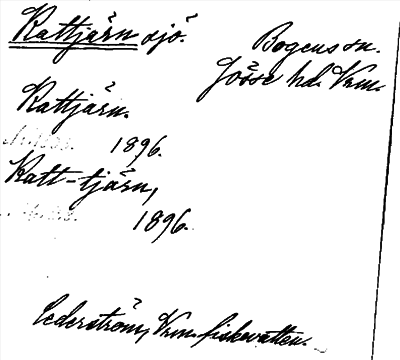 Kattjärn sjö.
Bogens sn.
Jösse hd. Vrm.
Kattjärn.
1896.
Katt-tjärn,
1896.
Cederström, Vrm. fiskevatten.